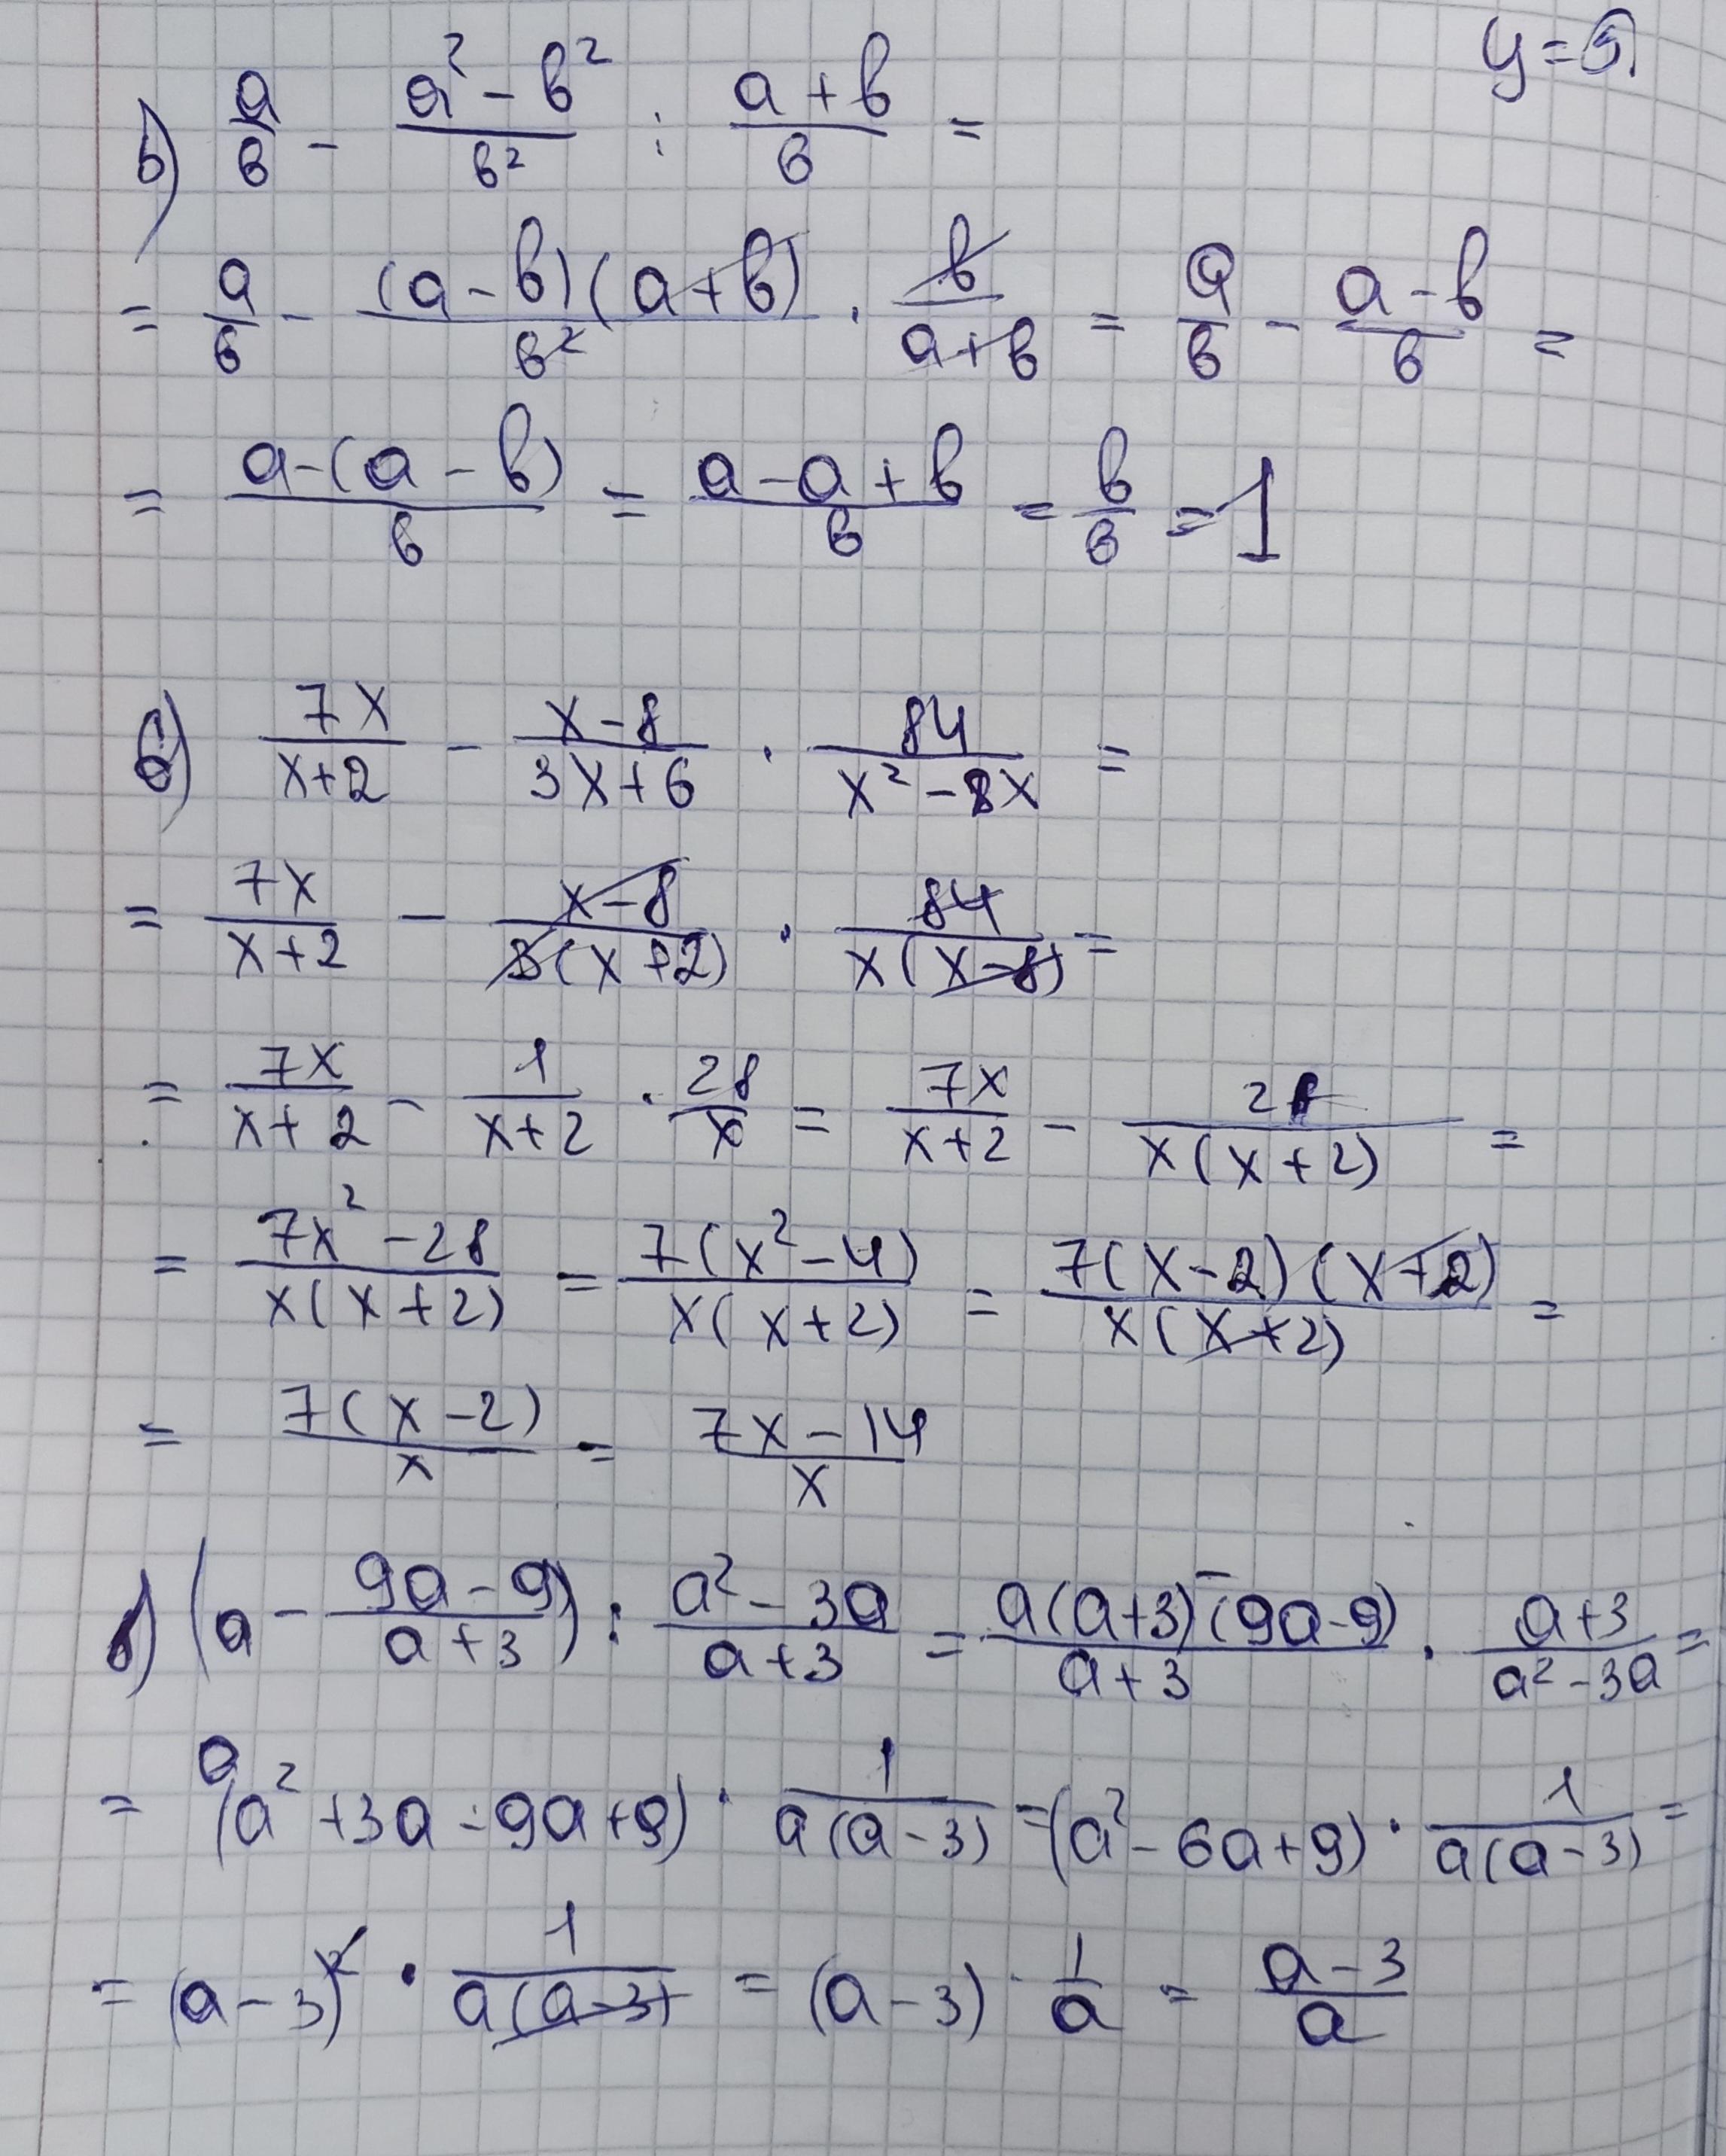 y = 9
б) a/в - (a² - в²)/в² : (a + в)/в =
= a/в - ((a - в)(a + в))/в² · в/(a + в) = a/в - (a - в)/в =
= (a - (a - в))/в = (a - a + в)/в = в/в = 1
б) 7x/(x+2) - (x - 8)/(3x + 6) · 84/(x² - 8x) =
= 7x/(x+2) - (x - 8)/(3(x+2)) · 84/(x(x - 8)) =
= 7x/(x+2) - 1/(x+2) · 28/x = 7x/(x+2) - 28/(x(x+2)) =
= (7x² - 28)/(x(x+2)) = (7(x² - 4))/(x(x+2)) = (7(x - 2)(x + 2))/(x(x+2)) =
= (7(x - 2))/x = (7x - 14)/x
б) (a - (9a - 9)/(a + 3)) : (a² - 3a)/(a + 3) = (a(a+3) - (9a - 9))/(a + 3) · (a + 3)/(a² - 3a) =
= (a² + 3a - 9a + 9) · 1/(a(a - 3)) = (a² - 6a + 9) · 1/(a(a - 3)) =
= (a - 3)² · 1/(a(a - 3)) = (a - 3) · 1/a = (a - 3)/a